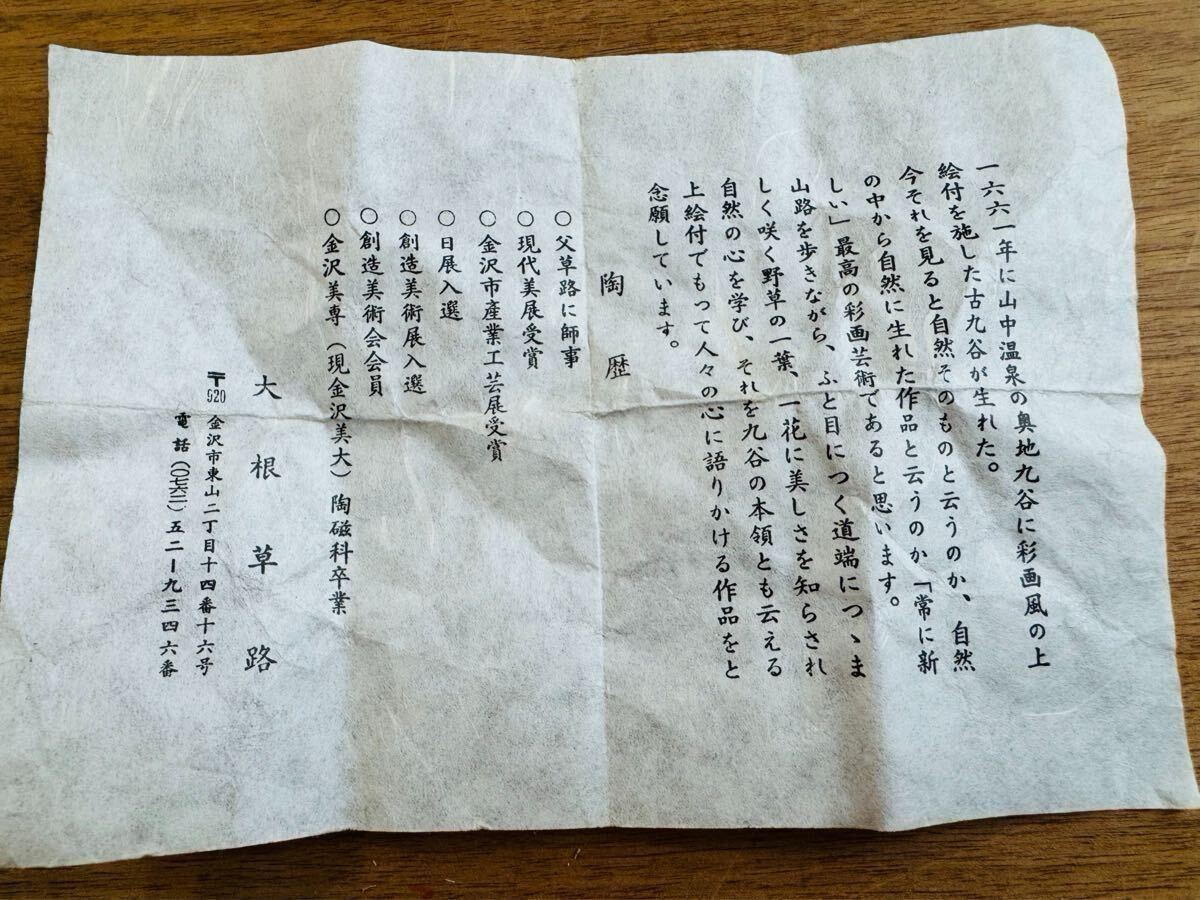 一六六一年に山中温泉の奥地九谷に彩画風の上
絵付を施した古九谷が生れた。
今それを見ると自然そのものと云うのか、自然
の中から自然に生れた作品と云うのか「常に新
しい」最高の彩画芸術であると思います。
山路を歩きながら、ふと目につく道端につゝま
しく咲く野草の一葉、一花に美しさを知らされ
自然の心を学び、それを九谷の本領とも云える
上絵付でもって人々の心に語りかける作品をと
念願しています。
陶歴
〇父草路に師事
〇現代美展受賞
〇金沢市産業工芸展受賞
〇日展入選
〇創造美術展入選
〇創造美術会会員
〇金沢美専（現金沢美大）陶磁科卒業
大根草路
〒920 金沢市東山二丁目十四番十六号
電話（〇七六二）五二ー九三四六番